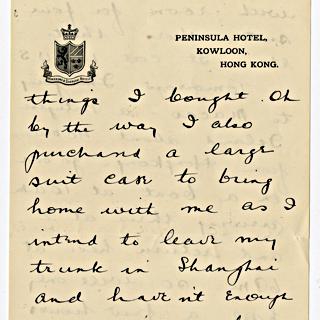 PENINSULA HOTEL,
KOWLOON,
HONG KONG.
things I bought. Oh
by the way I also
purchasd a large
suit case to bring
home with me as I
intend to leave my
trunk in Shanghai
and haven't enough